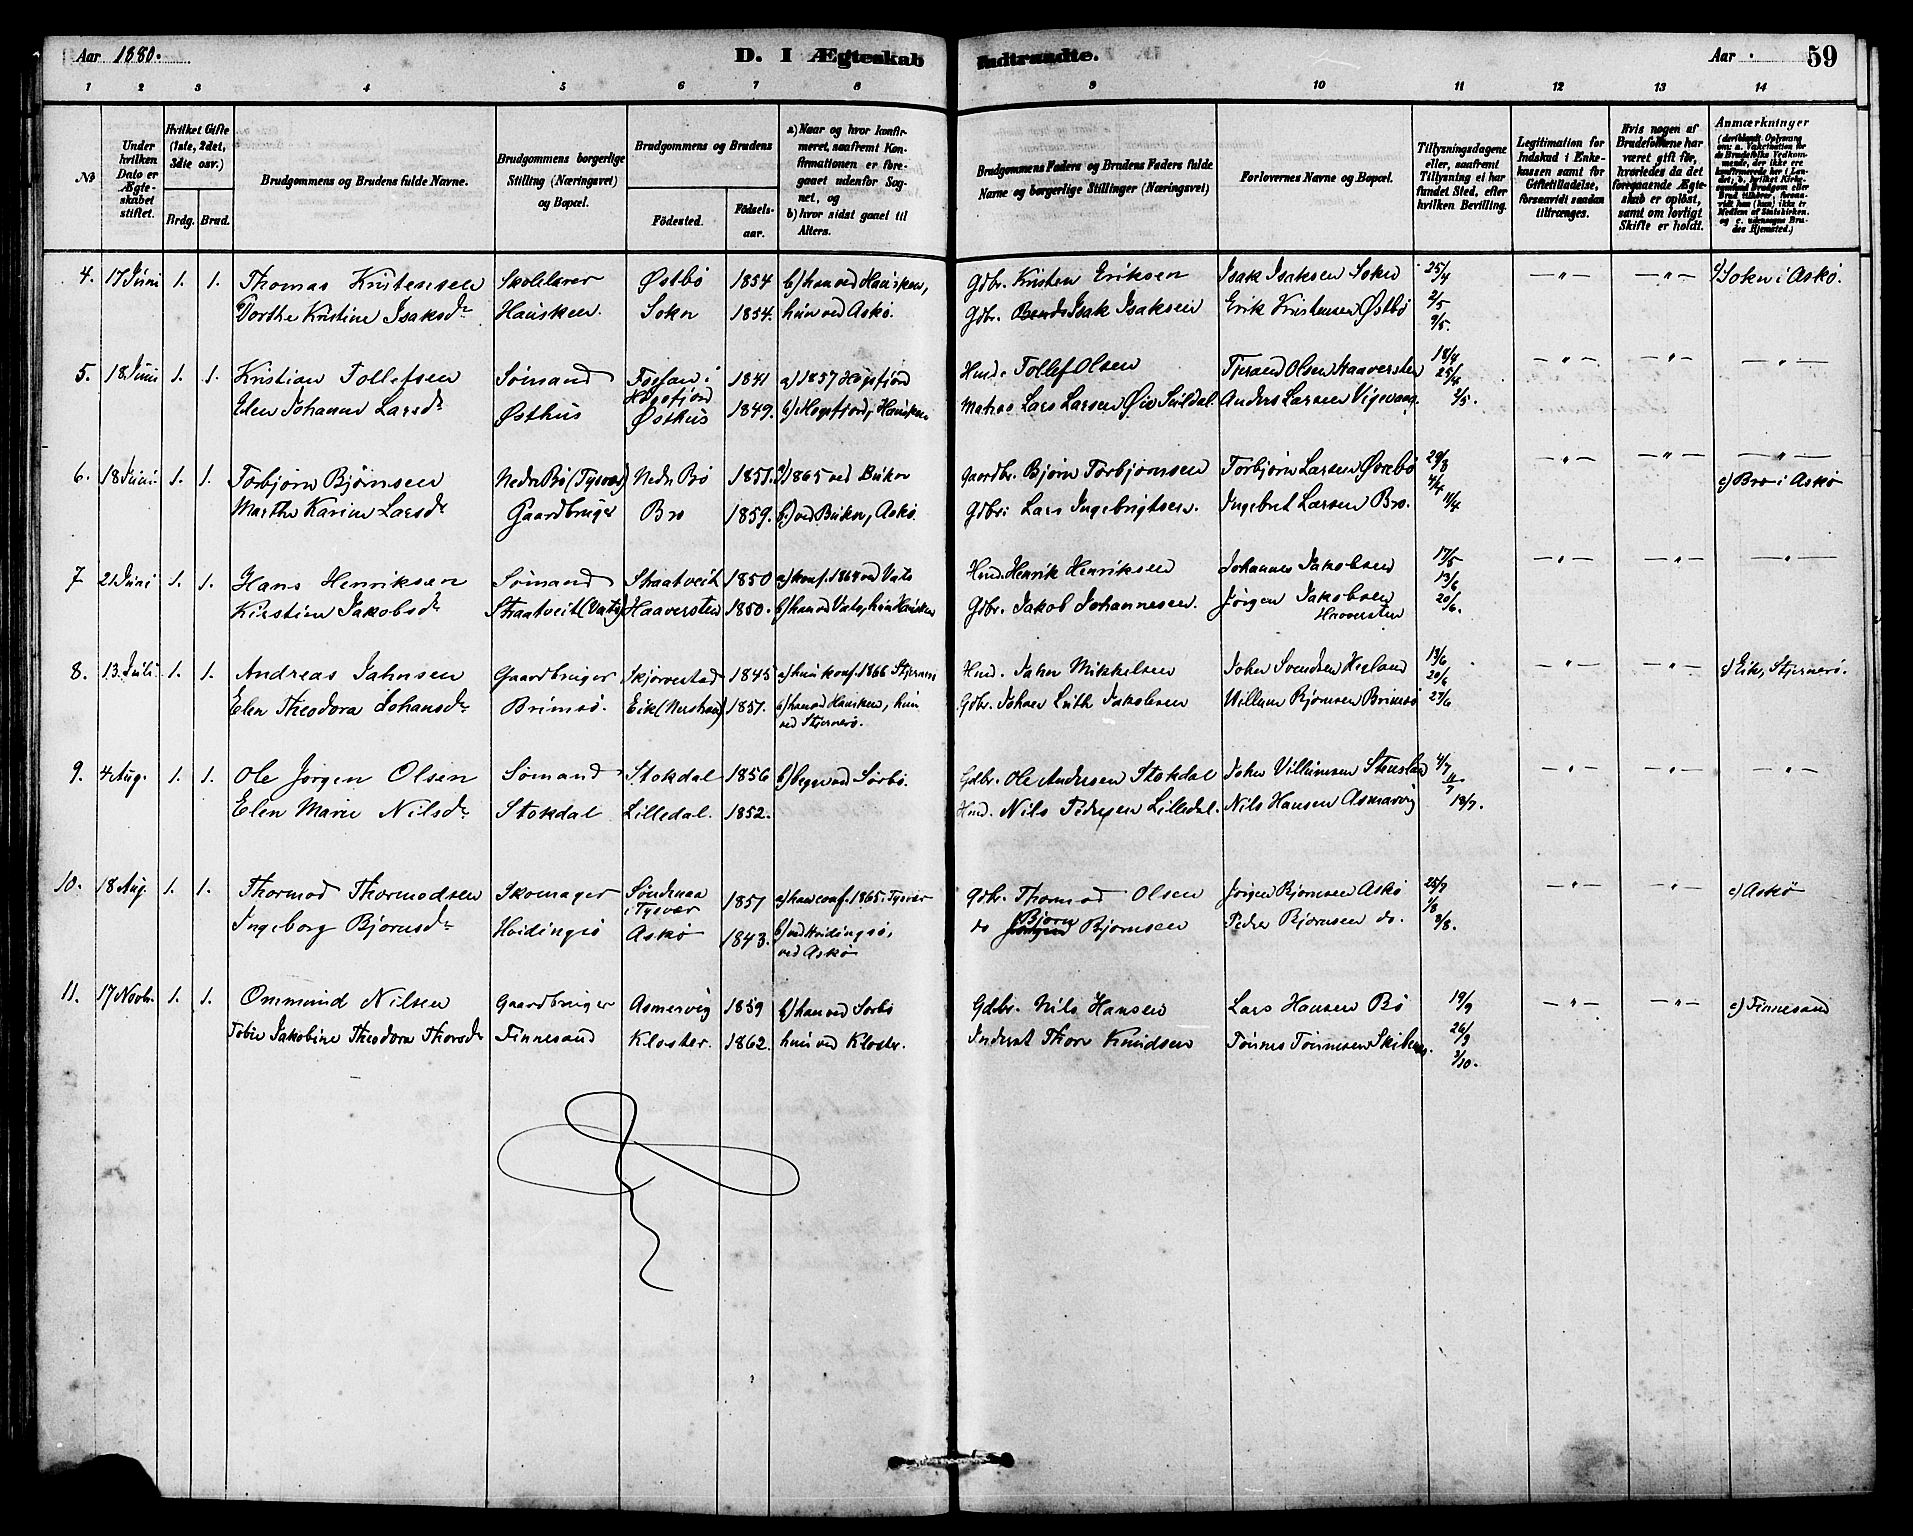 Aar 1880.
D. I Ægteskab indtraadte.
Aar
59
1 2 3 4 5 6 7 8 9 10 11 12 13 14
No
Under hvilken Dato er Ægteskabet stiftet.
Hvilket Gifte (1ste, 2det, 3die osv.)
Brdg. Brud.
Brudgommens og Brudens fulde Navne.
Brudgommens borgerlige Stilling (Næringsvei) og Bopæl.
Brudgommens og Brudens
Födested. Födselsaar.
a) Naar og hvor konfirmeret, saafremt Konfirmationen er foregaaet udenfor Sognet, og b) hvor sidst gaaet til Alters.
Brudgommens Faders og Brudens Faders fulde Navne og borgerlige Stillinger (Næringsvei)
Forlovernes Navne og Bopæl.
Tillysningsdagene eller, saafremt Tillysning ei har fundet Sted, efter hvilken Bevilling.
Legitimation for Indskud i Enkekassen samt for Giftetilladelse, forsaavidt saadan tiltrænges.
Hvis nogen af Brudefolkene har været gift før, hvorledes da det foregaaende Ægteskab er oplöst, samt om lovligt Skifte er holdt.
Anmærkninger
4. 17 Juni 1. 1. Thomas Kristensen Skolelærer Østbö 1854 b) han ved Hausken, Gdbr. Kristen Eriksen Isak Isaksen Sokn 25/4 c) Sokn i Askö.
Dorthe Kristine Isaksdr Hausken. Sokn 1854. hun ved Askö. Gdbr. Isak Isaksen Erik Kristensen Østbö 2/5
9/5.
5. 18 Juni 1. 1. Kristian Tollefsen Sömand Fossan i Høgsfjord 1841 a) 1857 Høgsfjord Husmd. Tollef Olsen Tjerand Olsen Haaversten 18/4 25/4
Elen Johanne Larsdr Østhus Østhus 1849. b) Høgsfjord, Hausken Matros Lars Larsen Øiv Suldal. Anders Larsen Vigevaag. 2/5.
6. 18 Juni 1. 1. Torbjörn Björnsen Nedre Bö (Tysvær) Nedre Bö 1851. a) 1865 ved Bukn Gaardbr. Björn Torbjörnsen Torbjörn Larsen Øvrebö 29/3 4/4 c) Bro i Askö
Marthe Karine Larsdr Gaardbruger Bro 1859. b) ved Bukn, Askö. Gdbr. Lars Ingebrigtsen. Ingebret Larsen Bro. 11/4
7 21 Juni 1. 1. Hans Henriksen Sömand Straatveit 1850 a) konf. 1864 ved Vats Husmd. Henrik Henriksen Johannes Jakobsen 17/5 13/6
Kirstine Jakobsdr Straatveit (Vats) Haaversten 1850. b) han ved Vats, hun Hausken Gdbr. Jakob Johannesen. Jörgen Jakobsen Haaversten 20/6.
8. 13 Juli 1. 1. Andreas Jahnsen Gaardbruger Skjörvestad 1845 a) hun konf. 1866 Stjernerö Husmd. Jahn Mikkelsen John Svendsen Hesland 13/6 20/6 c) Eik, Stjernerö.
Elen Theodora Johansdr Brimsö. Eik (Nerstrand) 1851. b) han ved Hausken, hun ved Stjernerö. Gdbr. Johan Luth Jakobsen Willum Björnsen Brimsö 27/6
9. 4 Aug. 1. 1. Ole Jörgen Olsen Sömand Stokdal 1856 b) begge ved Sörbö. Gdbr. Ole Andersen Stokdal John Villumsen 4/7 11/7
Elen Marie Nilsdr Stokdal Lilledal. 1852. Husmd. Nils Pedersen Lilledal. Nils Hansen Asmarvig 18/7.
10. 18 Aug. 1. 1. Thormod Thormodsen Skomager Söndenaa i Tysvær 1851 a) han conf. 1865 Tysvær Gdbr. Thormod Olsen Jörgen Björnsen Askö 25/7 1/8 c) Askö
Ingeborg Björnsdr Hvidingsö Askö 1843. b) ved Hvidingsö, ved Askö do Björn Björnsen Peder Björnsen do. 8/8.
11. 17 Novbr. 1. 1. Ommund Nilsen Gaardbruger Asmervig 1859 b) han ved Sörbö Gdbr. Nils Hansen Lars Hansen Bö 19/9 c) Finnesand
Tobie Jakobine Theodora Thorsdr Finnesand Kloster. 1862. hun ved Kloster. Inderst Thore Knudsen Tönnes Tönnesen 26/9
3/10.